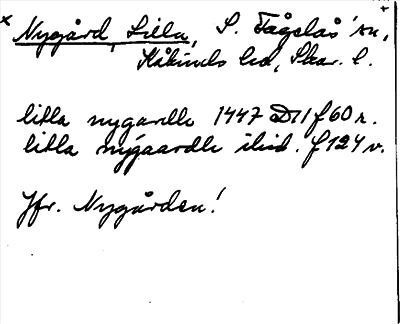 × Nygård, Lilla, S. Fågelås sn,
Kåkinds hd, Skar. l.
litla nygardh 1447 D 11 f 60 r.
litla nÿgaardh ibid. f 124 v.
Jfr. Nygården!